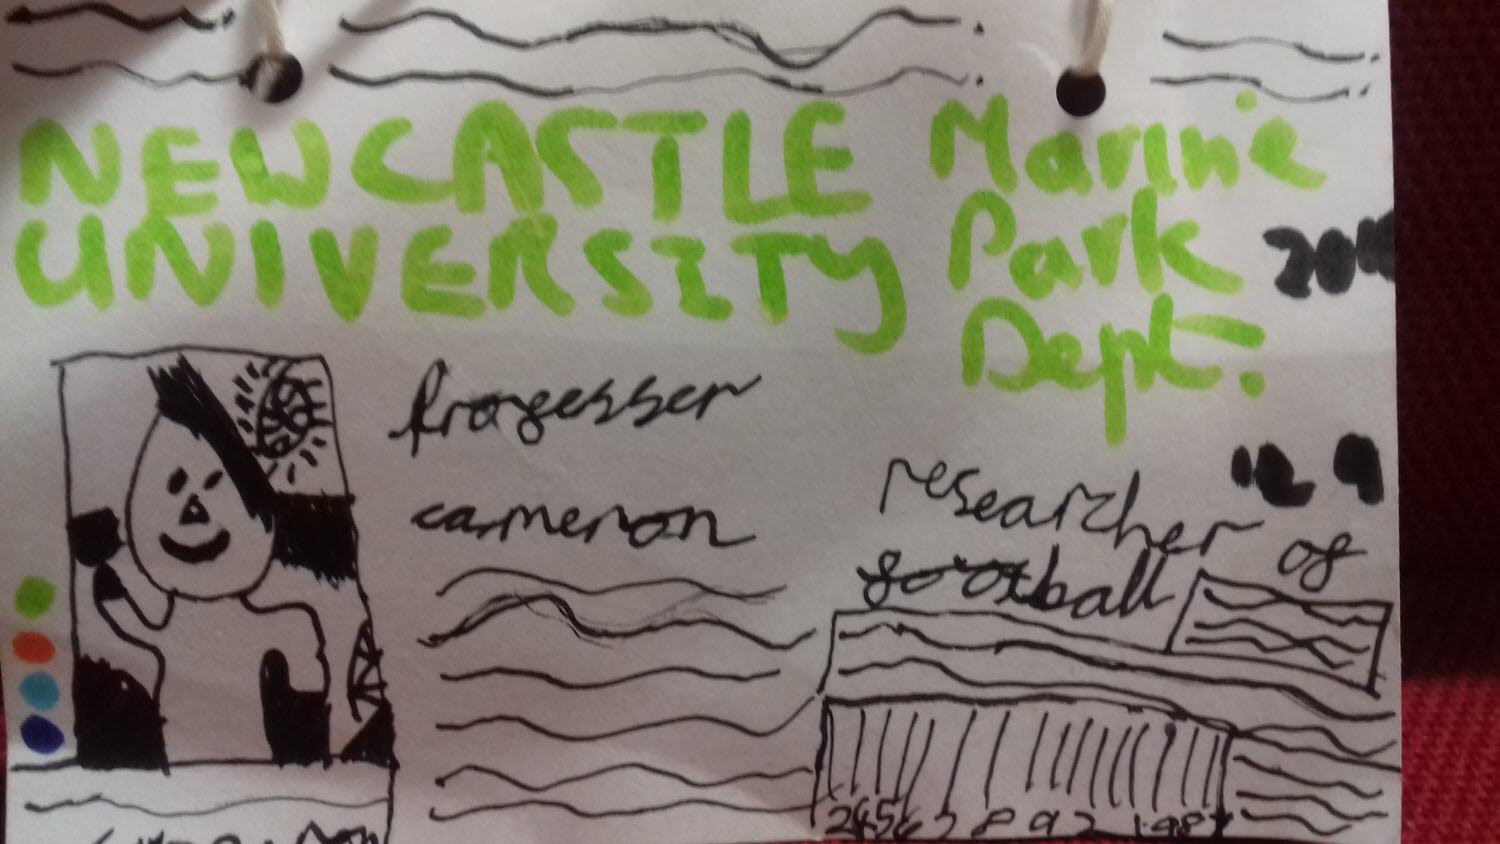 NEWCASTLE
UNIVERSITY
Marine
Park
Dept.
frogesser
cameron
researcher
og
gootball